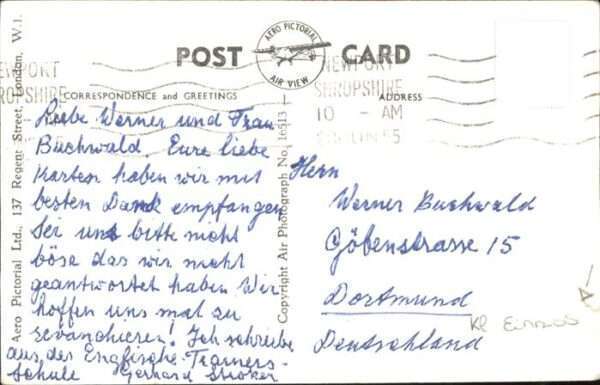 POST CARD
AERO PICTORIAL
AIR VIEW
NEWPORT
SHROPSHIRE
NEWPORT
SHROPSHIRE
10 - AM
55
CORRESPONDENCE and GREETINGS
ADDRESS
Aero Pictorial Ltd., 137 Regent Street, London, W.1.
Copyright Air Photograph No. 16513
Liebe Werner und Frau
Buchwald. Eure liebe
Karten haben wir mit
besten Dank empfangen
Sei uns bitte nicht
böse das wir nicht
geantwortet haben Wir
hoffen uns mal zu
revanchieren! Ich schreibe
aus der Englische-Farmers-
Schule Gerhard
Herrn
Werner Buchwald
Göbenstrasse 15
Dortmund
Deutschland